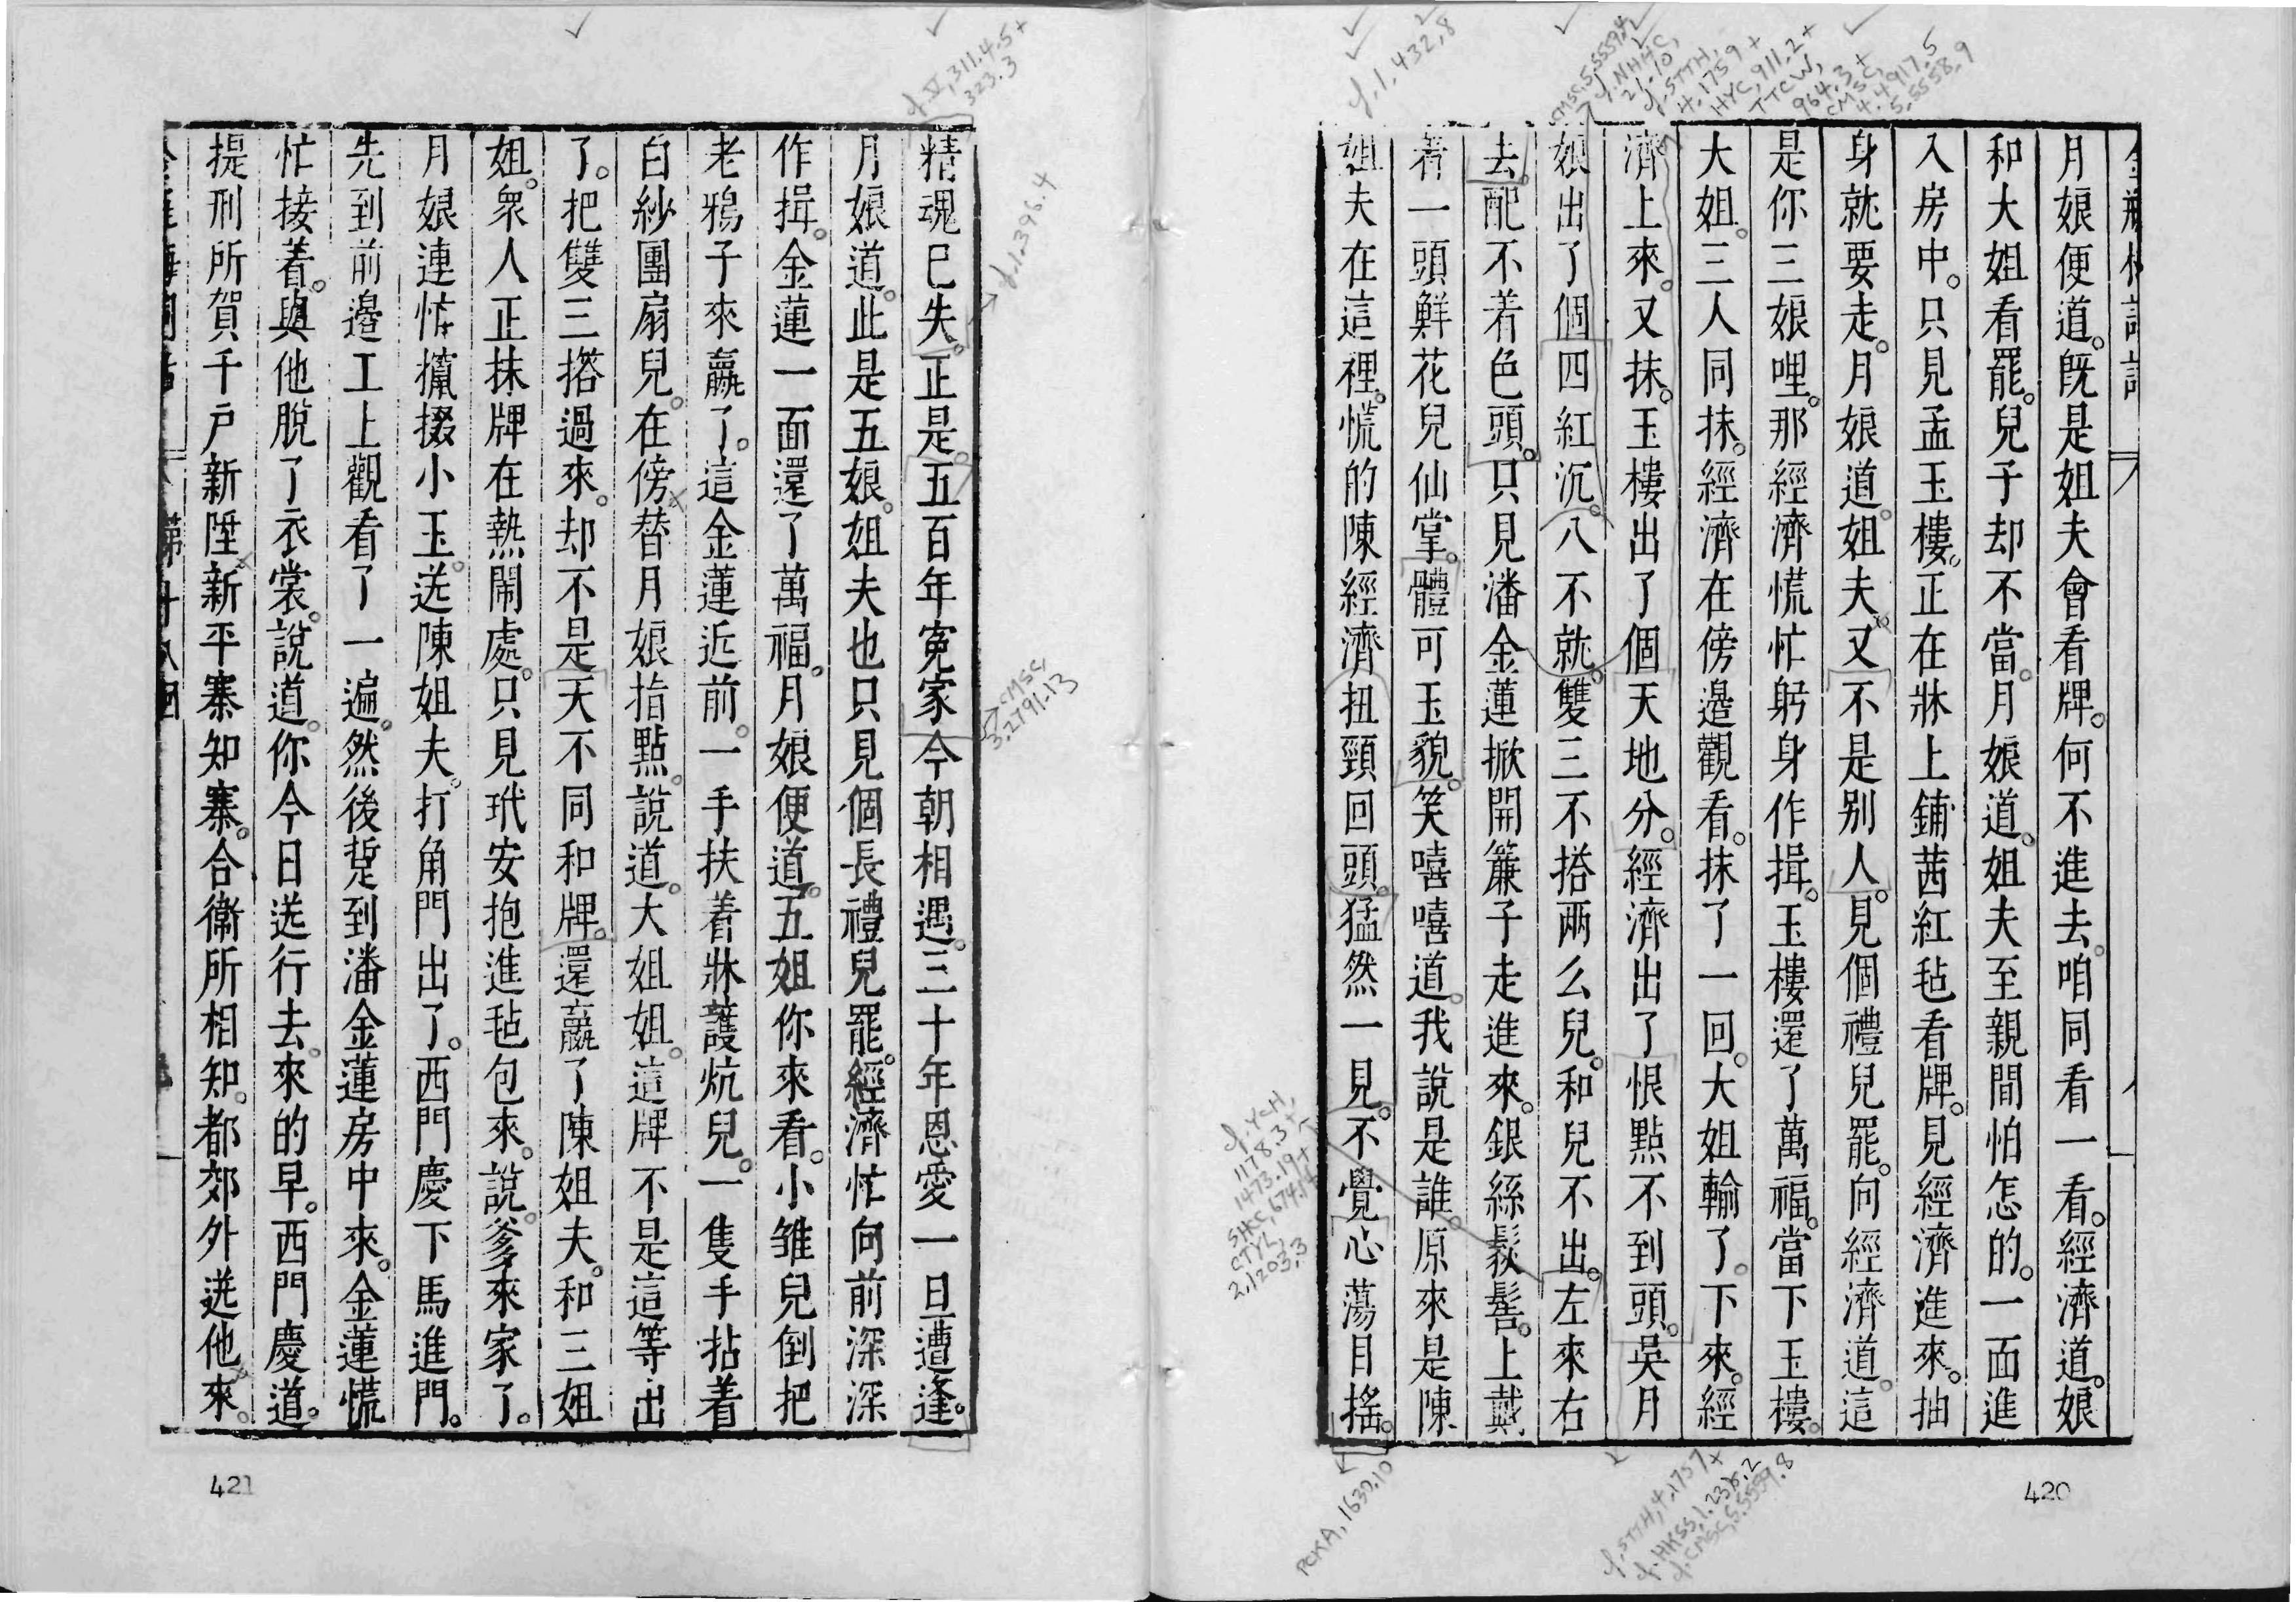 月娘便道。旣是姐夫會看牌。何不進去。咱同看一看。經濟道。娘
和大姐看罷。兒子却不當。月娘道。姐夫至親間怕怎的。一面進
入房中。只見孟玉樓。正在牀上鋪茜紅毡看牌。見經濟進來。抽
身就要走。月娘道。姐夫又不是別人。見個禮兒罷。向經濟道。這
是你三娘哩。那經濟慌忙躬身作揖。玉樓還了萬福。當下玉樓。
大姐。三人同抹。經濟在傍邉觀看。抹了一回。大姐輸了。下來。經
濟上來。又抹。玉樓出了個天地分。經濟出了恨點不到頭。吳月
娘出了個四紅沉。八不就。雙三不搭两么兒。和兒不出。左來右
去。配不着色頭。只見潘金蓮掀開簾子走進來。銀絲䯼髻。上戴
着一頭鮮花兒仙掌。體可玉貌。笑嘻嘻道。我說是誰。原來是陳
姐夫在這裡。慌的陳經濟扭頸回頭。猛然一見。不覺心蕩目搖。
420
精魂已失。正是。五百年寃家今朝相遇。三十年恩愛一旦遭逢。
月娘道。此是五娘。姐夫也只見個長禮兒罷。經濟忙向前深深
作揖。金蓮一面還了萬福。月娘便道。五姐你來看。小雏兒倒把
老鴉子來贏了。這金蓮近前。一手扶着牀護炕兒。一隻手拈着
白紗團扇兒。在傍替月娘指點。說道。大姐姐。這牌不是這等出
了。把雙三搭過來。却不是天不同和牌。還贏了陳姐夫。和三姐
姐。衆人正抹牌在熱閙處。只見玳安抱進毡包來。說。爹來家了。
月娘連忙攛掇小玉。送陳姐夫。打角門出了。西門慶下馬進門。
先到前邉工上觀看了一遍。然後踅到潘金蓮房中來。金蓮慌
忙接着。與他脫了衣裳。說道。你今日送行去。來的早。西門慶道。
提刑所賀千户新陞新平寨知寨。合衛所相知。都郊外送他來。
421
cf. V, 311.4.5+
323.3
cf. 1.396.4
CMSC,
3.2791.13
cf. 1.432,8
CMSC,5.5559,4
cf. NHHC,
cf. STTH,
4.1759+
HYC,911.2+
TTCW,
964.3+
CMSC,
4.4917.5
5.5558.9
cf. YCH,
PCKA, 1630.10
cf. STTH,4.1757+